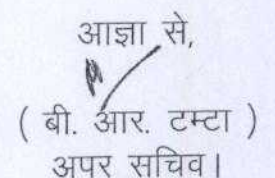 आज्ञा से,
( बी. आर. टम्टा )
अपर सचिव।